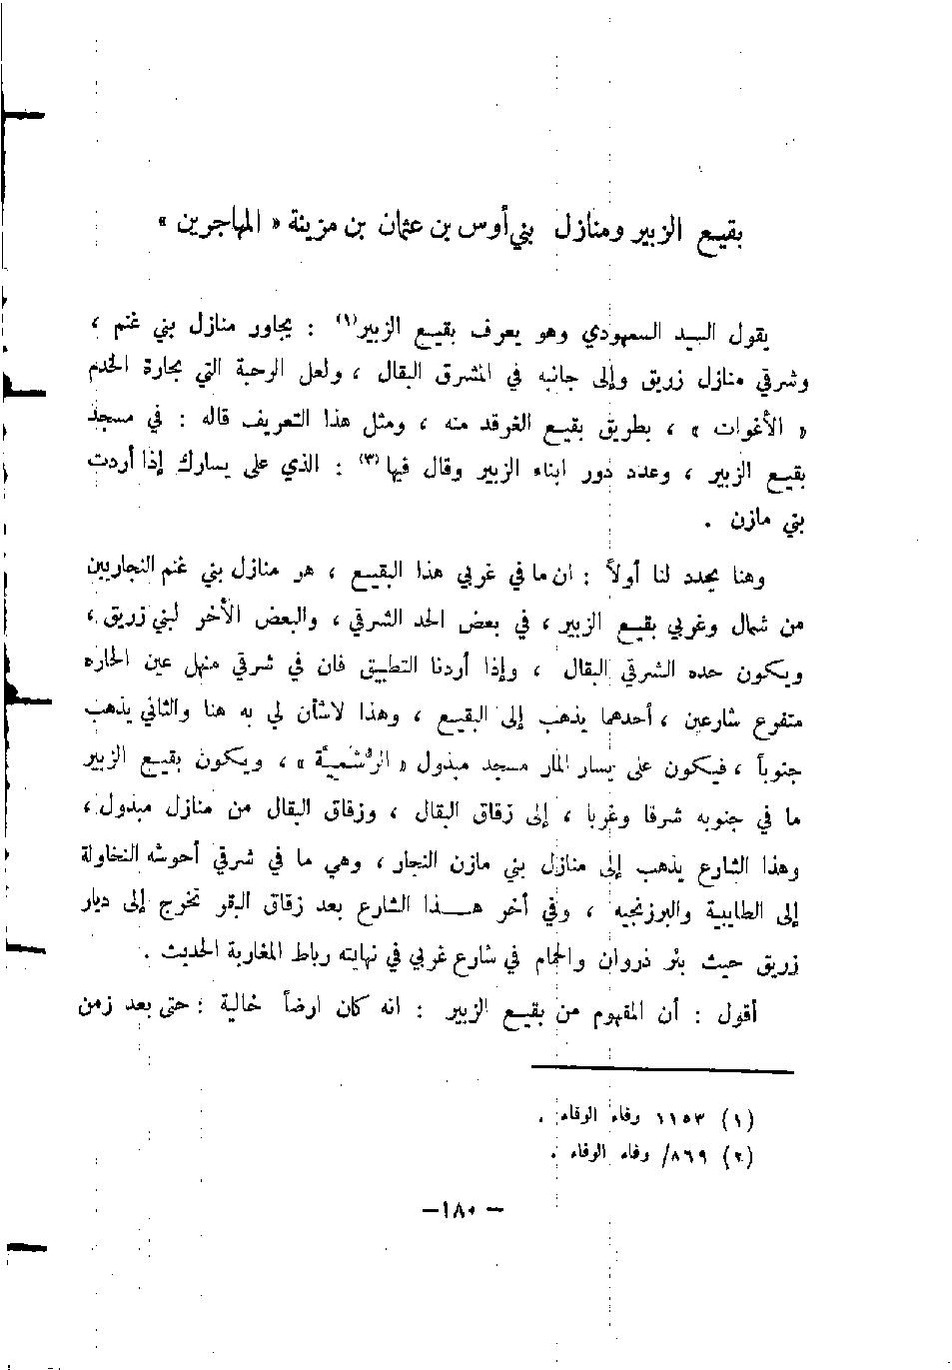 بقيع الزبير ومنازل بني أوس بن عثمان بن مزينة « المهاجرين »
يقول السيد السمهودي وهو يعرف بقيع الزبير (١) : يجاور منازل بني غنم ،
وشرقي منازل زريق وإلى جانبه في المشرق البقال ، ولعل الرحبة التي بجارة الخدم
« الأغوات » ، بطريق بقيع الغرقد منه ، ومثل هذا التعريف قاله : في مسجد
بقيع الزبير ، وعدد دور ابناء الزبير وقال فيها (٣) : الذي على يسارك إذا أردت
بني مازن .
وهنا يحدد لنا أولاً : ان ما في غربي هذا البقيع ، هر منازل بني غنم النجاريين
من شمال وغربي بقيع الزبير ، في بعض الحد الشرقي ، والبعض الأخر لبني زريق ،
ويكون حده الشرقي البقال ، وإذا أردنا التطبيق فان في شرقي منهل عين الحاره
متفوع شارعين ، أحدهما يذهب إلى البقيع ، وهذا لاشأن لي به هنا والثاني يذهب
جنوباً ، فيكون على يسار المار مسجد مبذول « الرُّشَمِيَّة » ، ويكون بقيع الزبير
ما في جنوبه شرقا وغربا ، إلى زقاق البقال ، وزقاق البقال من منازل مبذول ،
وهذا الشارع يذهب إلى منازل بني مازن النجار ، وهي ما في شرقي أحوشه النخاولة
إلى الطابية والبرزنجيه ، وفي أخر هــذا الشارع بعد زقاق البقو تخوج إلى ديار
زريق حيث بئر ذروان والحمام في شارع غربي في نهايته رباط المغاربة الحديث .
أقول : أن المفهوم من بقيع الزبير : انه كان ارضاً خالية : حتى بعد زمن
(١) ١١٥٣ وفاء الوفاء .
(٢) ٨٦٩/ وفاء الوفاء .
– ١٨٠ –